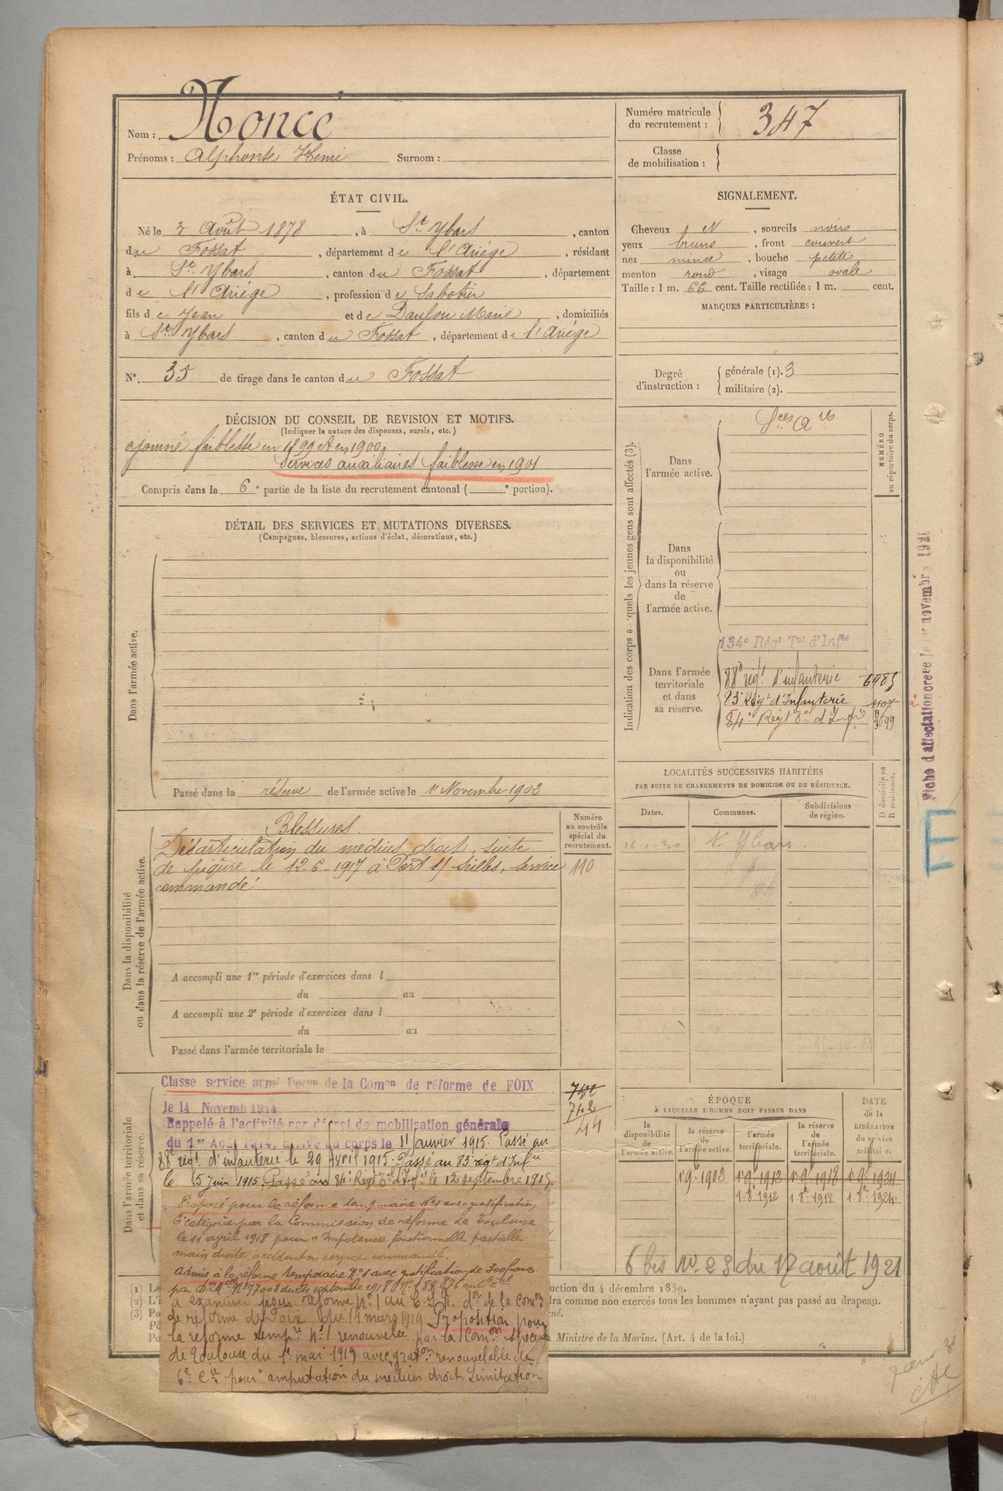 Nom : Noncé
Prénoms : Alphonse Henri Surnom :
Numéro matricule du recrutement : 347
Classe de mobilisation :
ÉTAT CIVIL.
Né le 3 Août 1878, à St Ybars, canton
du Fossat, département de l'Ariège, résidant
à St Ybars, canton du Fossat, département
de l'Ariège, profession de Sabotier
fils de Jean et de Daulou Marie, domiciliés
à St Ybars, canton du Fossat, département de l'Ariège
N° 35 de tirage dans le canton du Fossat
SIGNALEMENT.
Cheveux N, sourcils noirs
yeux bruns, front couvert
nez mince, bouche petite
menton rond, visage ovale
Taille : 1 m. 66 cent. Taille rectifiée : 1 m. cent.
MARQUES PARTICULIÈRES :
Degré d'instruction : générale (1). 3
militaire (2).
DÉCISION DU CONSEIL DE REVISION ET MOTIFS.
(Indiquer la nature des dispenses, sursis, etc.)
ajourné faiblesse en 1899 et en 1900
Services auxiliaires faiblesse en 1901
Compris dans la 6e partie de la liste du recrutement cantonal ( e portion).
DÉTAIL DES SERVICES ET MUTATIONS DIVERSES.
(Campagnes, blessures, actions d'éclat, décorations, etc.)
Dans l'armée active.
Passé dans la réserve de l'armée active le 1 Novembre 1902
Indication des corps auxquels les jeunes gens sont affectés (3).
NUMÉRO au répertoire du corps.
Dans l'armée active.
Sces Ares
Dans la disponibilité ou dans la réserve de l'armée active.
Dans l'armée territoriale et dans sa réserve.
134e Régt Tal d'Infie
88e régt d'infanterie 6985
83e Régt d'Infanterie 1107
84e Régt Tal d'Infie 3699
Fiche d'affectation créée le 1er novembre 1921
E
LOCALITÉS SUCCESSIVES HABITÉES
PAR SUITE DE CHANGEMENTS DE DOMICILE OU DE RÉSIDENCE.
Dates.
Communes.
Subdivisions de région.
D domicile ou R résidence.
St Ybars
Dans la disponibilité ou dans la réserve de l'armée active.
Numéro au contrôle spécial du recrutement.
110
Blessures.
Désarticulation du médius droit, suite
de piqûre le 12-6-1917 à Port s/ Seilles, service
commandé.
A accompli une 1re période d'exercices dans l
du au
A accompli une 2e période d'exercices dans l
du au
Passé dans l'armée territoriale le
Dans l'armée territoriale et dans sa réserve.
Classé service armé Décon de la Comon de réforme de FOIX
le 14 Novemb 1914
Rappelé à l'activité par décret de mobilisation générale
du 1er Août 1914, arrivé au corps le 11 Janvier 1915. Passé au
88e régt d'infanterie le 29 Avril 1915. Passé au 83e régt d'Infie
le 15 Juin 1915. Passé au 84e Régt Tal d'Infie le 12 septembre 1915
712
44
Proposé pour la réforme temporaire N°1 avec gratification
8e catégorie par la Commission de réforme de Toulouse
le 11 avril 1918 pour "Impotence fonctionnelle partielle
main droite, accident en service commandé.
Admis à la réforme temporaire N°1 avec gratification de
à examiner pour réforme n°1 au C.S.R. Don de la Comon
de réforme de Foix du 11 mars 1919 Proposition pour
la réforme tempre N°1 renouvelée par la Comon spéciale
de Toulouse du 1er mai 1919 avec graton renouvelable de
6e Cie pour "amputation du médius droit, limitation
ÉPOQUE
À LAQUELLE L'HOMME DOIT PASSER DANS
la disponibilité de l'armée active.
la réserve de l'armée active.
l'armée territoriale.
la réserve de l'armée territoriale.
DATE de la LIBÉRATION du service militaire.
1 9bre 1902
1 9bre 1912
1 9bre 1918
1 9bre 1924
1.8bre 1912
1.8bre 1918
1.8bre 1924
6 bis N° 23 du 17 août 1921
ction du 4 décembre 1889.
dra comme non exercés tous les hommes n'ayant pas passé au drapeau.
Ministre de la Marine. (Art. 4 de la loi.)